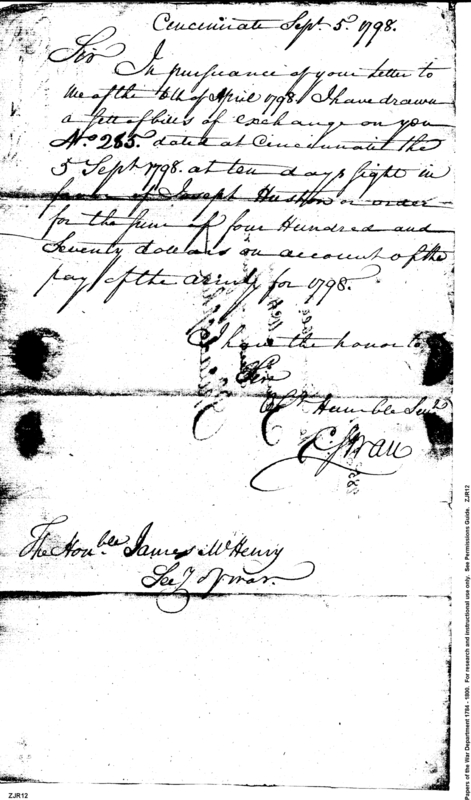 Cincinnate Sept. 5. 1798.
Sir
In pursuance of your Letter to
me of the 6th of April 1798. I have drawn
a sett of bills of exchange on you
No. 285. dated at Cincinnate the
5 Sept 1798. at ten days sight in
favor of Joseph Huston or order
for the sum of four Hundred and
Seventy dollars on account of the
pay of the army for 1798.
I have the honor to
Sir
Obt Humble Servt
C Swan
The Honble. James McHenry
Secy of war.
Papers of the War Department 1784 - 1800. For research and instructional use only. See Permissions Guide. ZJR12
ZJR12